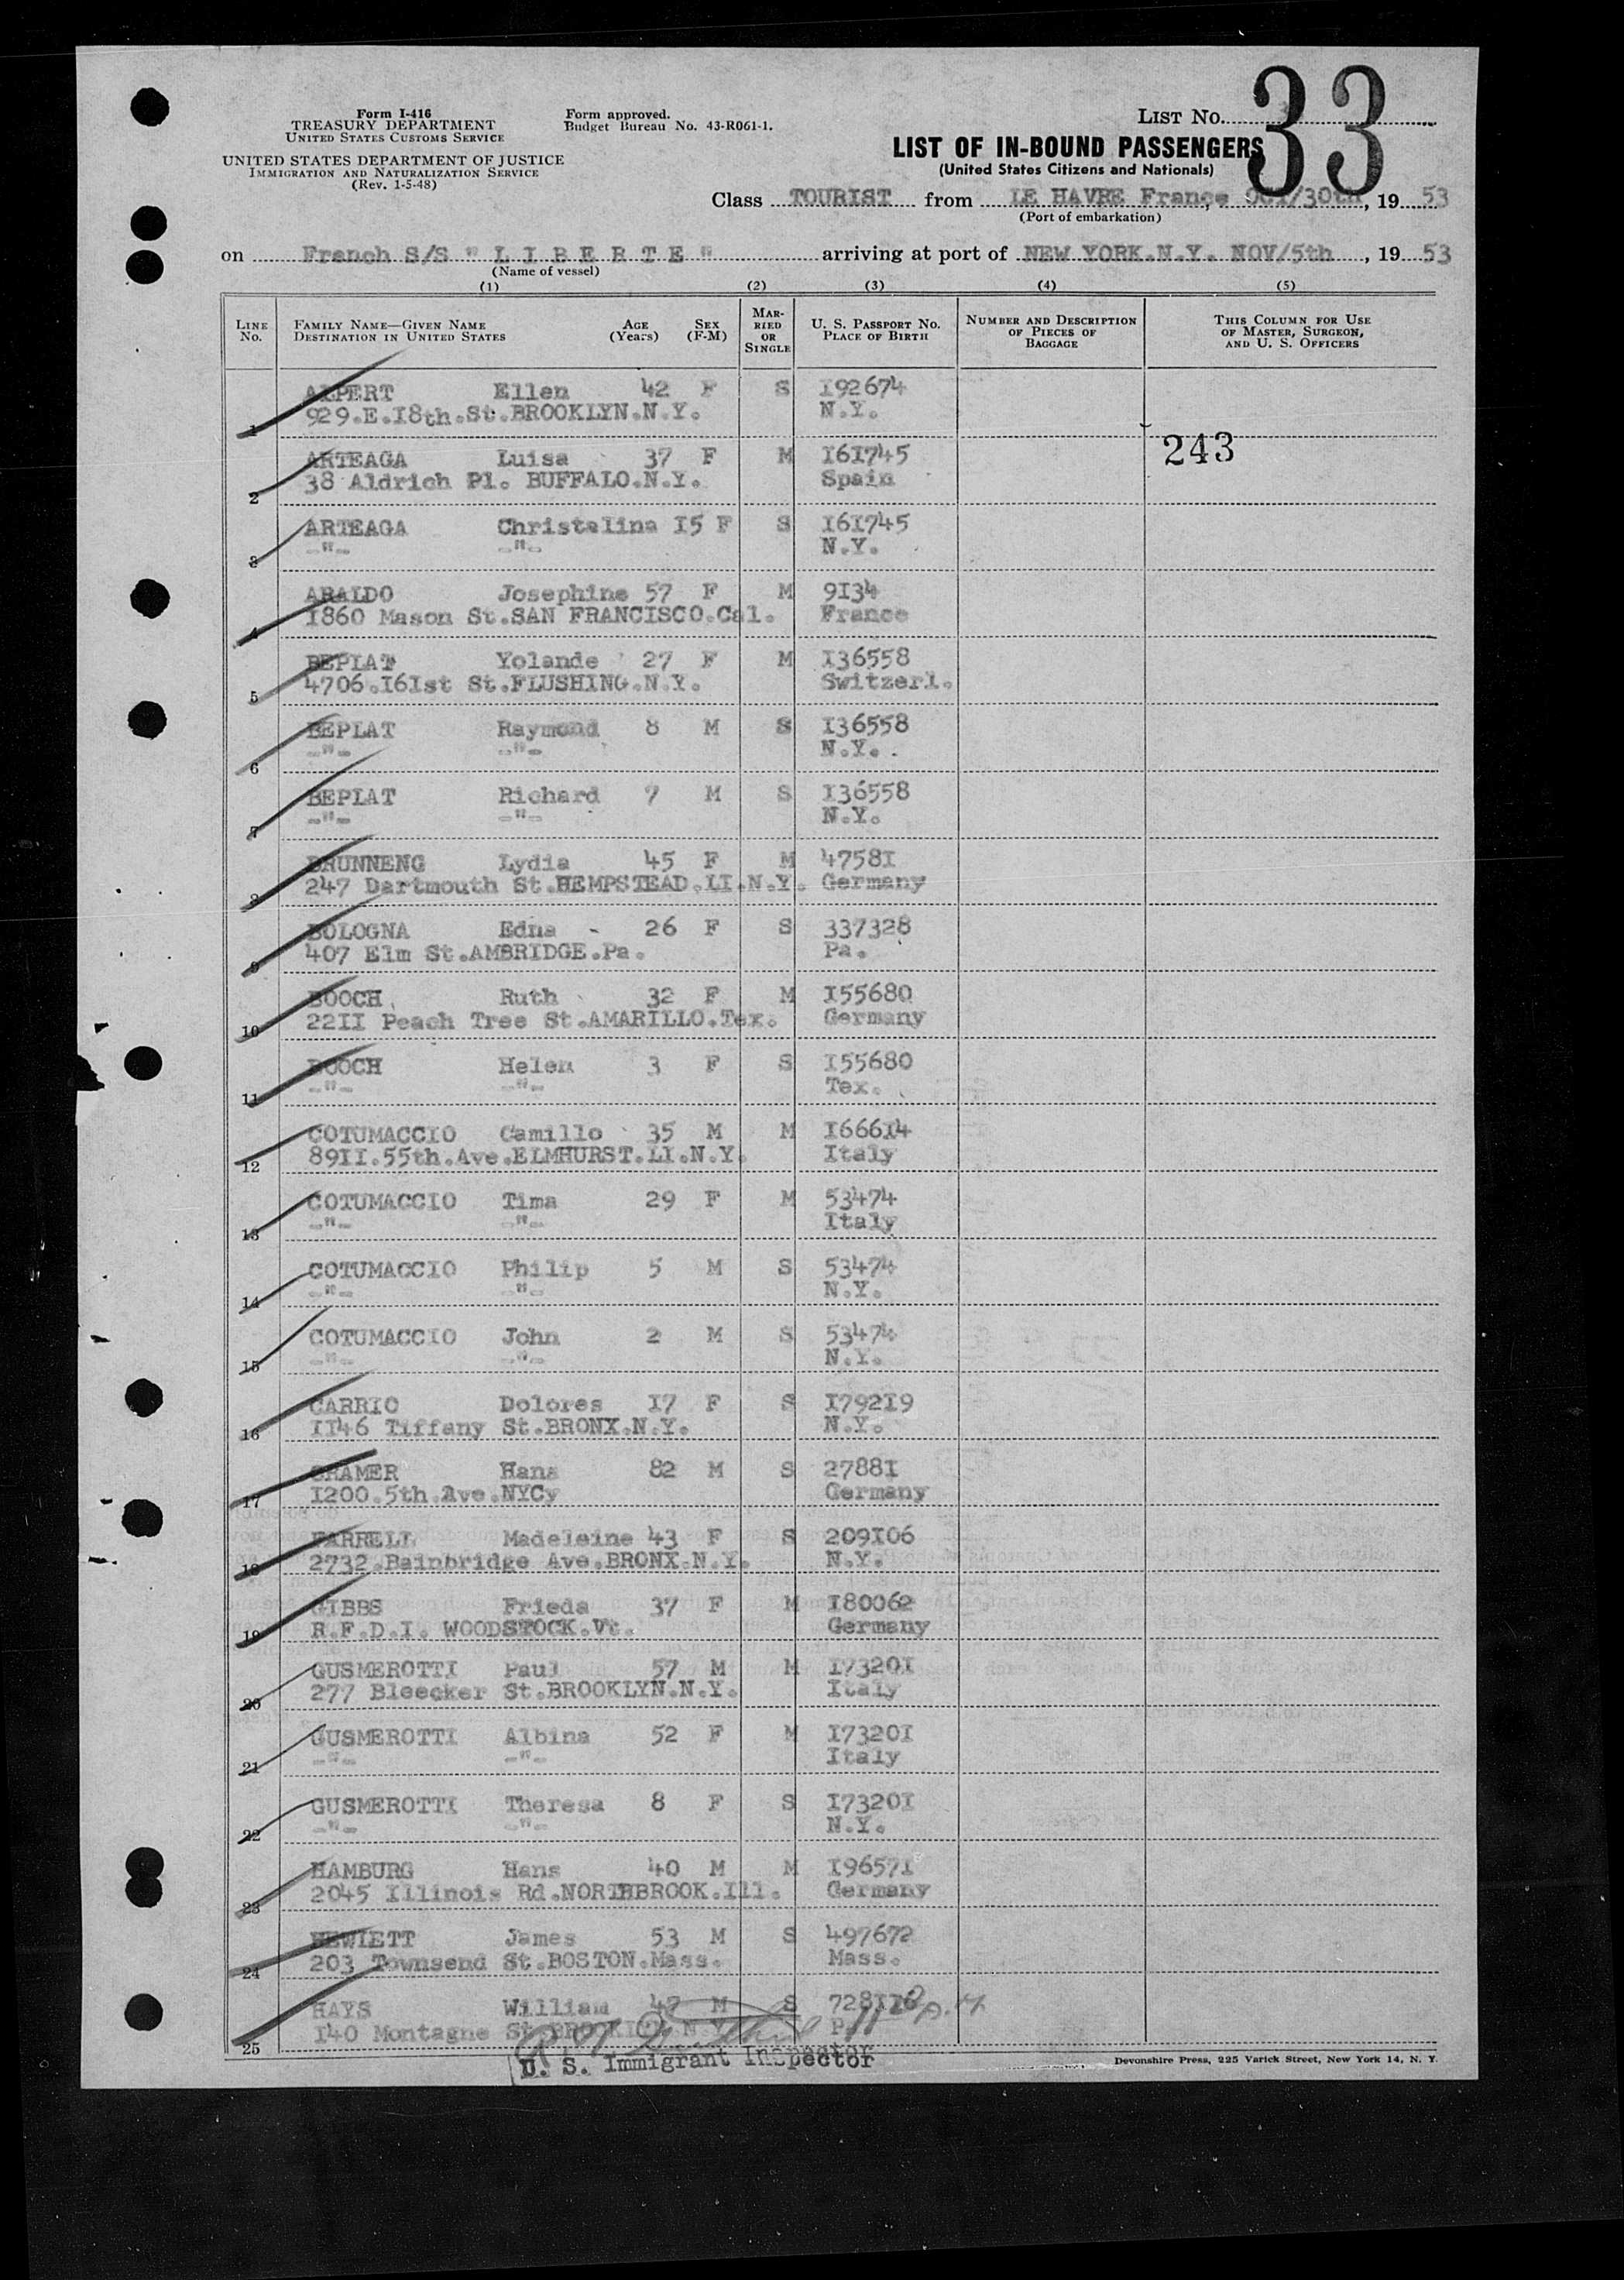 Form I-416
TREASURY DEPARTMENT
UNITED STATES CUSTOMS SERVICE
UNITED STATES DEPARTMENT OF JUSTICE
IMMIGRATION AND NATURALIZATION SERVICE
(Rev. 1-5-48)
Form approved.
Budget Bureau No. 43-R061-1.
LIST NO. 33
LIST OF IN-BOUND PASSENGERS
(United States Citizens and Nationals)
Class TOURIST from LE HAVRE France, OCT/30th, 19 53
(Port of embarkation)
on French S/S " L I B E R T E " arriving at port of NEW YORK.N.Y. NOV/5th , 19 53
(Name of vessel)
(1) (2) (3) (4) (5)
LINE No. FAMILY NAME—GIVEN NAME DESTINATION IN UNITED STATES AGE (Years) SEX (F-M) MARRIED OR SINGLE U. S. PASSPORT NO. PLACE OF BIRTH NUMBER AND DESCRIPTION OF PIECES OF BAGGAGE THIS COLUMN FOR USE OF MASTER, SURGEON, AND U. S. OFFICERS
ALPERT Ellen 42 F S I92674
1 929.E.I8th.St.BROOKLYN.N.Y. N.Y.
243
ARTEAGA Luisa 37 F M I6I745
2 38 Aldrich Pl. BUFFALO.N.Y. Spain
ARTEAGA Christalina I5 F S I6I745
3 -"- -"- N.Y.
ABALDO Josephine 57 F M 9I34
4 I860 Mason St.SAN FRANCISCO.Cal. France
BEPLAT Yolande 27 F M I36558
5 4706.I6Ist St.FLUSHING.N.Y. Switzerl.
BEPLAT Raymond 8 M S I36558
6 -"- -"- N.Y.
BEPLAT Richard 7 M S I36558
7 -"- -"- N.Y.
BRUNNENG Lydia 45 F M 4758I
8 247 Dartmouth St.HEMPSTEAD.LI.N.Y. Germany
BOLOGNA Edna - 26 F S 337328
9 407 Elm St.AMBRIDGE.Pa. Pa.
BOOCH Ruth 32 F M I55680
10 22II Peach Tree St.AMARILLO.Tex. Germany
BOOCH Helen 3 F S I55680
11 -"- -"- Tex.
COTUMACCIO Camillo 35 M M I666I4
12 89II.55th.Ave.ELMHURST.LI.N.Y. Italy
COTUMACCIO Tima 29 F M 53474
13 -"- -"- Italy
COTUMACCIO Philip 5 M S 53474
14 -"- -"- N.Y.
COTUMACCIO John 2 M S 53474
15 -"- -"- N.Y.
CARRIO Dolores I7 F S I792I9
16 II46 Tiffany St.BRONX.N.Y. N.Y.
CRAMER Hans 82 M S 2788I
17 I200.5th.Ave.NYCy Germany
FARRELL Madeleine 43 F S 209I06
18 2732.Bainbridge Ave.BRONX.N.Y. N.Y.
GIBBS Frieda 37 F M I80062
19 R.F.D.I. WOODSTOCK.Vt. Germany
GUSMEROTTI Paul 57 M M I7320I
20 277 Bleecker St.BROOKLYN.N.Y. Italy
GUSMEROTTI Albina 52 F M I7320I
21 -"- -"- Italy
GUSMEROTTI Theresa 8 F S I7320I
22 -"- -"- N.Y.
HAMBURG Hans 40 M M I9657I
23 2045 Illinois Rd.NORTHBROOK.Ill. Germany
HEWLETT James 53 M S 497672
24 203 Townsend St.BOSTON.Mass. Mass.
HAYS William 47 M S
25 I40 Montagne St.BROOKLYN.N.Y.
U. S. Immigrant Inspector
Devonshire Press, 225 Varick Street, New York 14, N. Y.